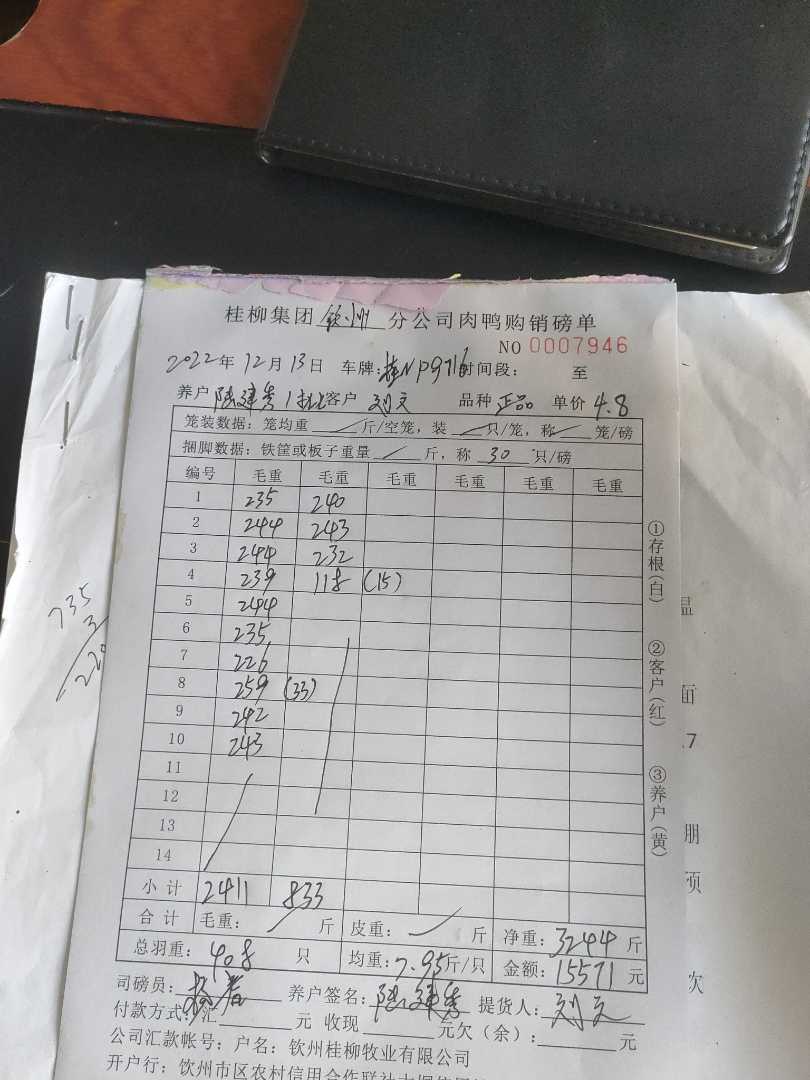 桂柳集团 钦州 分公司肉鸭购销磅单
NO 0007946
2022年 12月 13日 车牌:桂NP9716 时间段: 至
养户 陆建秀 1批 客户 刘文 品种 正品 单价 4.8
笼装数据: 笼均重 斤/空笼, 装 只/笼, 称 笼/磅
捆脚数据: 铁筐或板子重量 斤, 称 30 只/磅
编号 毛重 毛重 毛重 毛重 毛重 毛重
1 235 240
2 244 243
3 244 232
4 239 118 (15)
5 244
6 235
7 226
8 259 (33)
9 242
10 243
11
12
13
14
小计 2411 833
合计 毛重: 斤 皮重: 斤 净重: 3244 斤
总羽重: 408 只 均重: 7.95 斤/只 金额: 15571 元
司磅员: 养户签名: 陆建秀 提货人: 刘文
付款方式: 汇 元 收现 元欠(余): 元
公司汇款帐号: 户名: 钦州桂柳牧业有限公司
开户行: 钦州市区农村信用合作联社
①存根(白)
②客户(红)
③养户(黄)
735
3
220
面
.7
册
项
欠